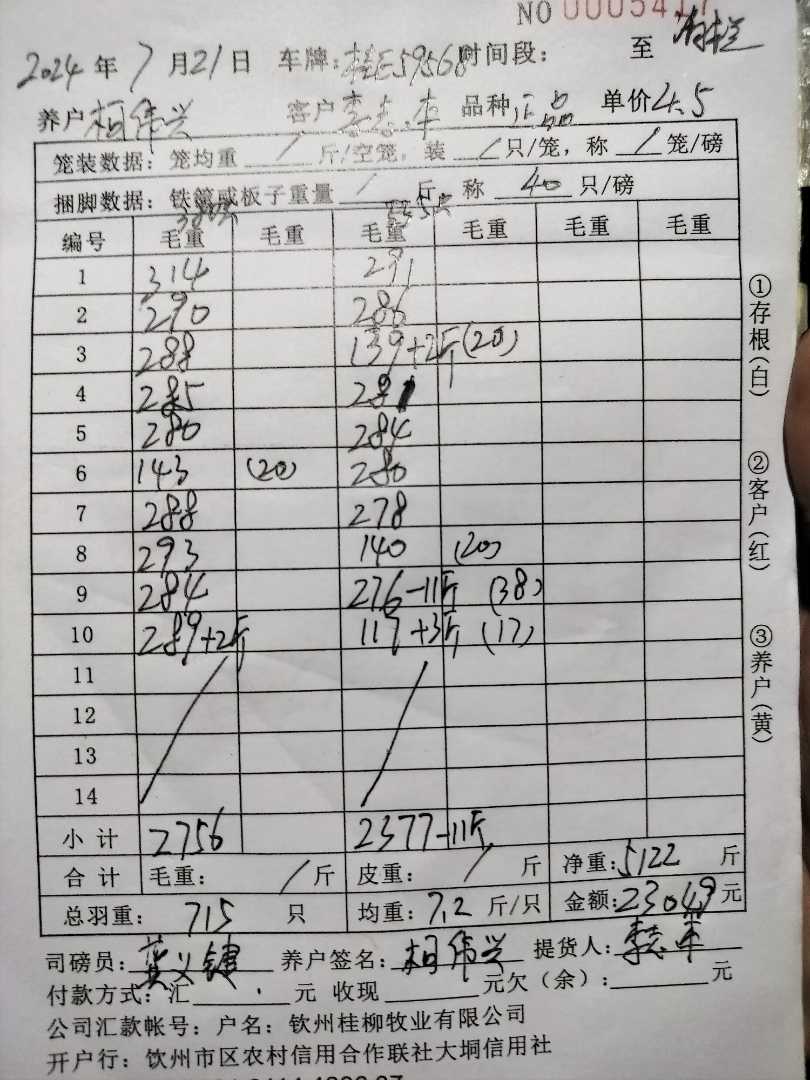 NO 0005417
2024年7月21日 车牌:桂E59568时间段: 至 清栏
养户柯伟兴 客户李志平 品种正品 单价4.5
笼装数据:笼均重 / 斤/空笼,装 / 只/笼,称 / 笼/磅
捆脚数据:铁篮或板子重量 / 斤 称 40 只/磅
380只 335只
编号 毛重 毛重 毛重 毛重 毛重 毛重
1 314 291
2 290 286
3 288 139+2斤(20)
4 285 281
5 280 284
6 143 (20) 280
7 288 278
8 293 140 (20)
9 284 276-11斤 (38)
10 289+2斤 117+3斤 (17)
11
12
13
14
小计 2756 2377-11斤
合计 毛重: / 斤 皮重: / 斤 净重:5122 斤
总羽重: 715 只 均重:7.2 斤/只 金额:23049元
司磅员:黄义键 养户签名:柯伟兴 提货人:李志平
付款方式:汇 元 收现 元欠(余): 元
公司汇款帐号:户名:钦州桂柳牧业有限公司
开户行:钦州市区农村信用合作联社大垌信用社
①存根(白)
②客户(红)
③养户(黄)